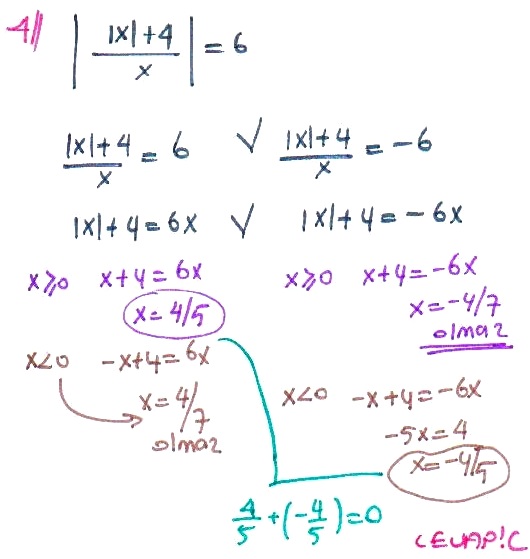 4) | (|x|+4)/x | = 6
(|x|+4)/x = 6 ∨ (|x|+4)/x = -6
|x|+4=6x ∨ |x|+4=-6x
x≥0 x+4=6x
x=4/5
x<0 -x+4=6x
x=4/7
olmaz
x≥0 x+4=-6x
x=-4/7
olmaz
x<0 -x+4=-6x
-5x=4
x=-4/5
4/5+(-4/5)=0
CEVAP:C